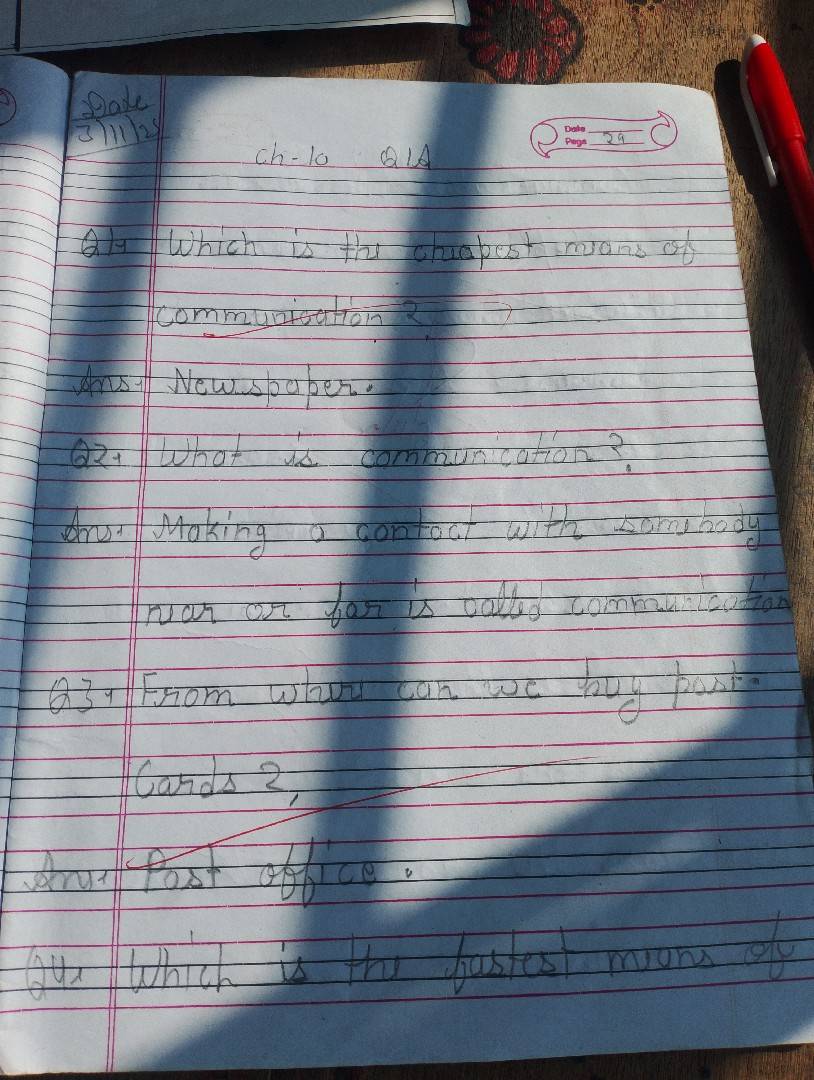 Date
3/11/25
Date
Page 29
Ch-10 Q/A
Q1→ Which is the cheapest means of
communication?
Ans→ Newspaper.
Q2→ What is communication?
Ans→ Making a contact with somebody
near or far is called communication
Q3→ From where can we buy post-
Cards?
Ans→ Post office.
Q4→ Which is the fastest means of